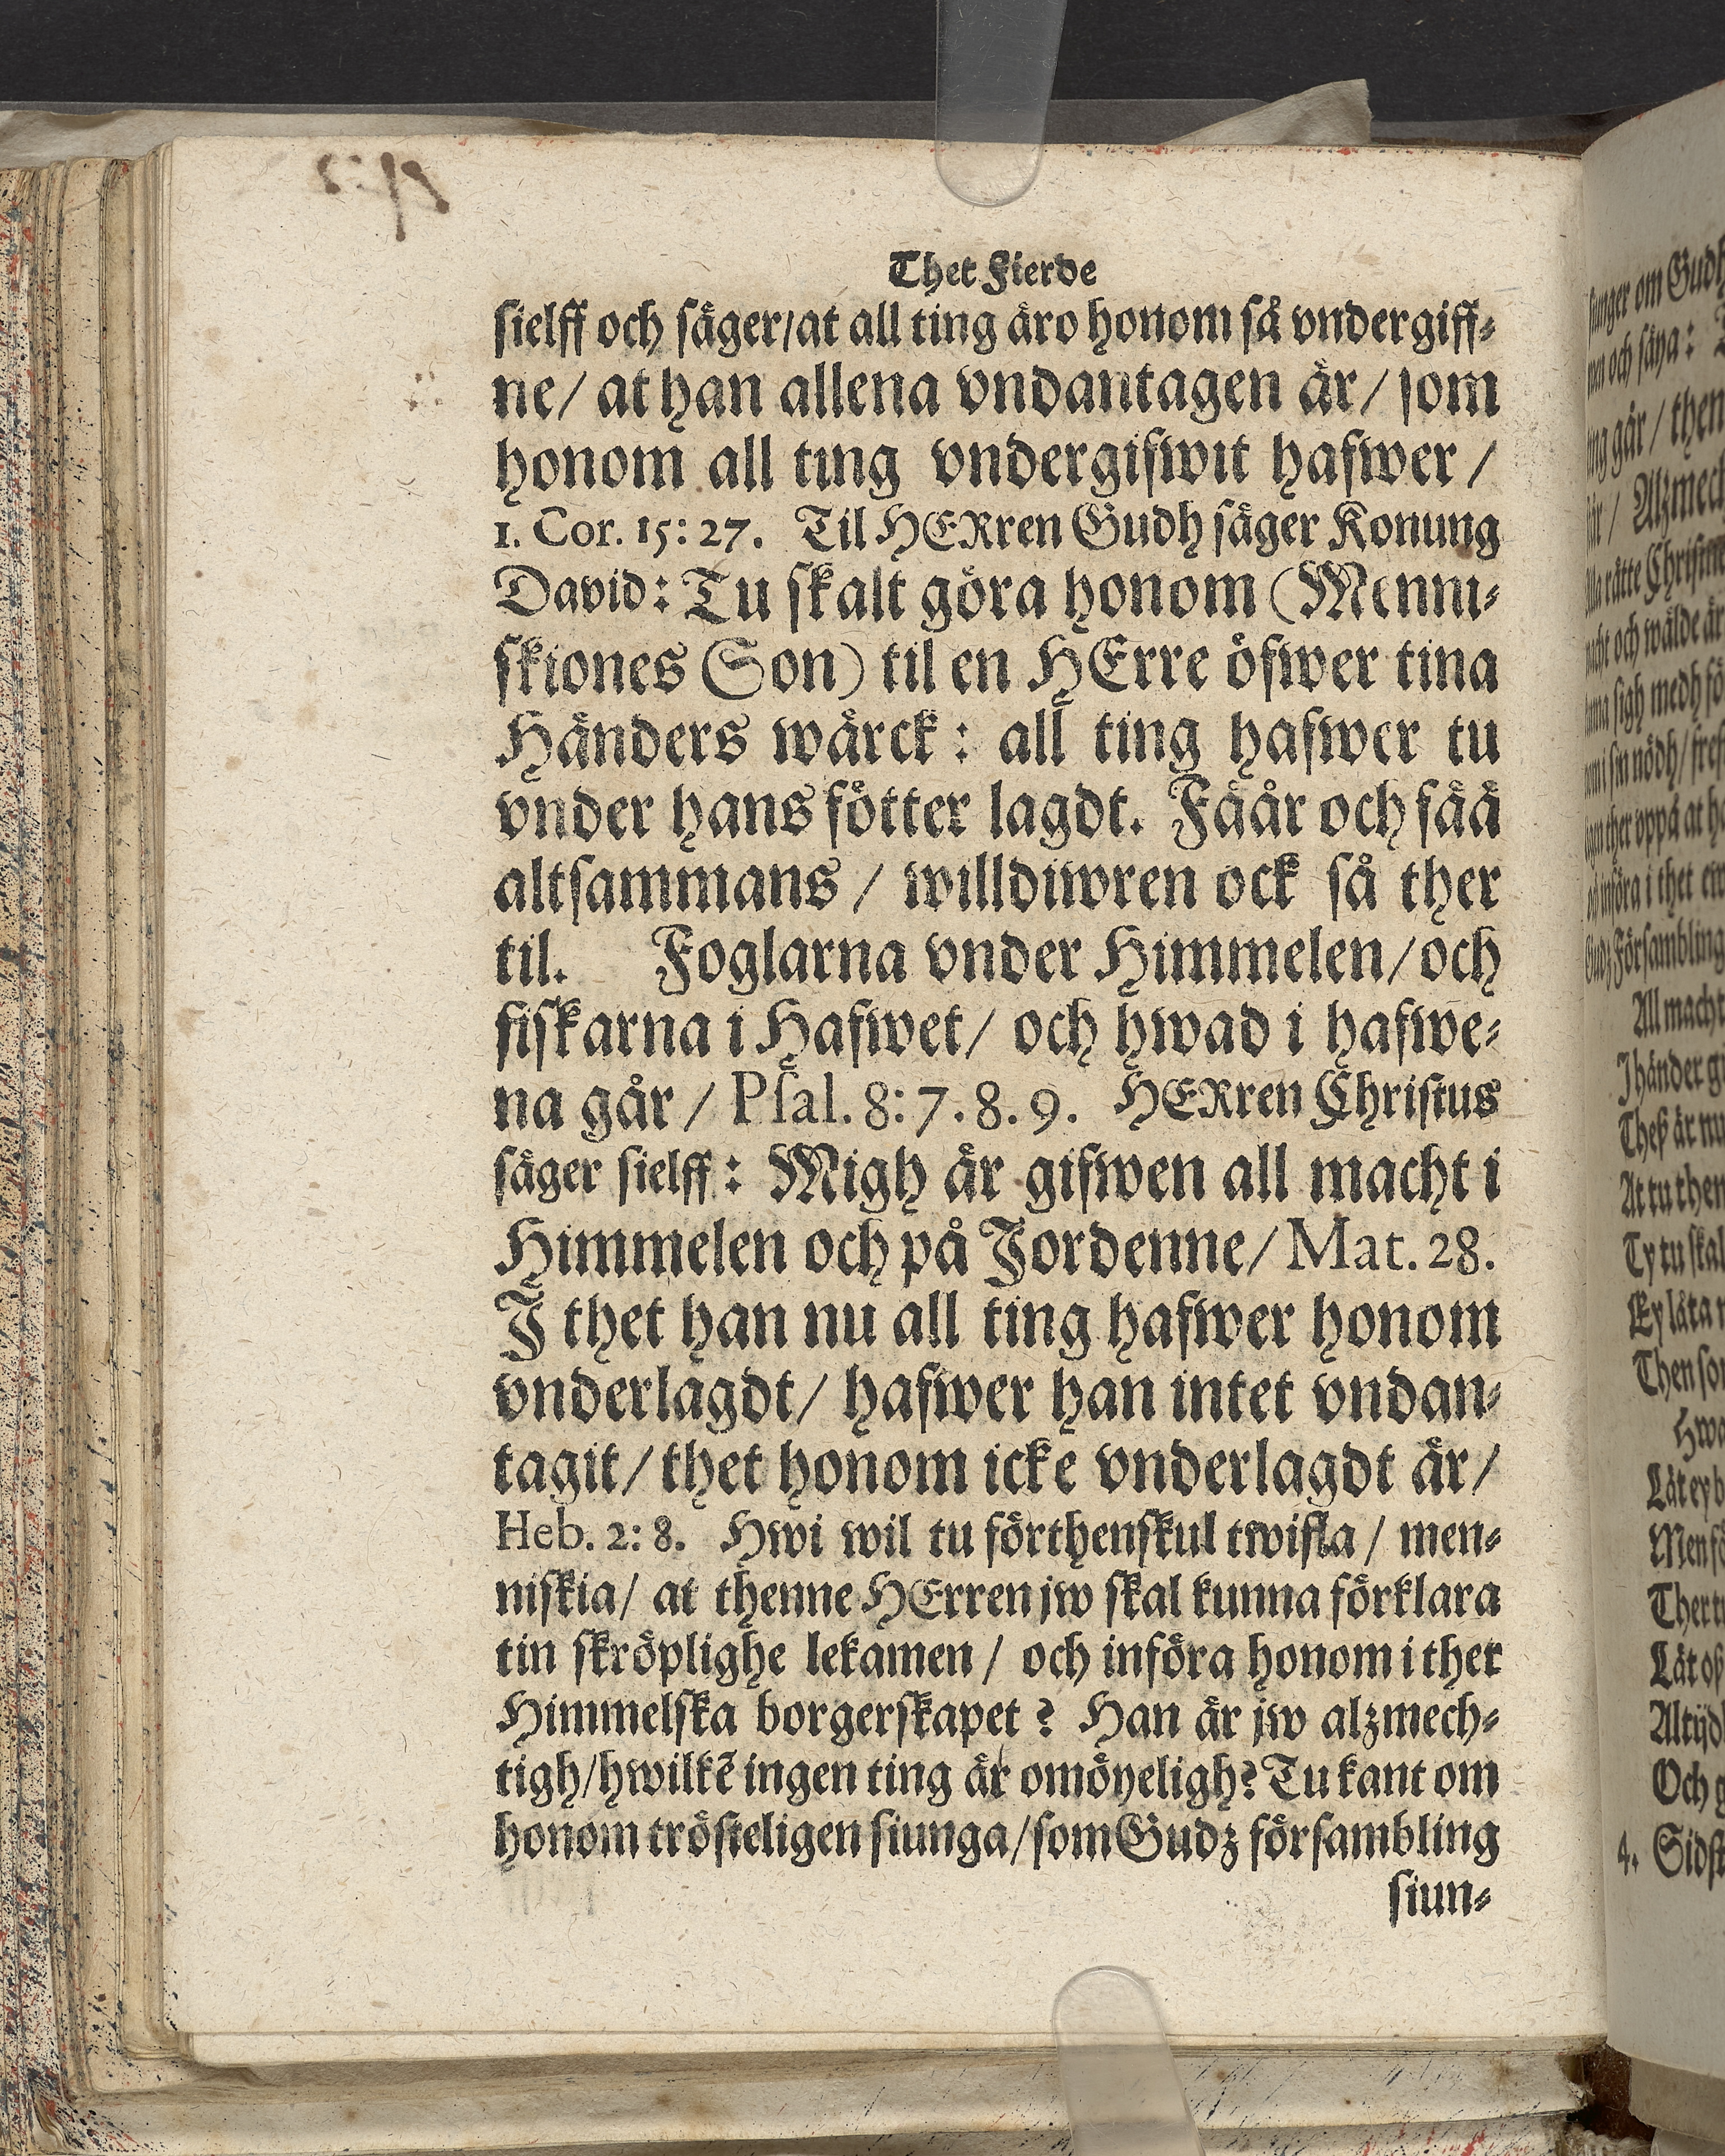 Thet Fierde
sielff och säger/at all ting äro honom så vndergiff⸗
ne/ at han allena vndantagen är/ som
honom all ting vndergifwit hafwer/
1. Cor. 15: 27. Til HERren Gudh säger Konung
David: Tu skalt göra honom (Menni⸗
skiones Son) til en HErre öfwer tina
Händers wärck: all ting hafwer tu
vnder hans fötter lagdt. Fäår och fää
altsammans / willdiwren ock så ther
til. Foglarna vnder Himmelen/och
fiskarna i Hafwet/ och hwad i hafwe⸗
na går/ Psal. 8: 7. 8. 9. HERren Christus
säger sielff: Migh är gifwen all macht i
Himmelen och på Jordenne/ Mat. 28.
J thet han nu all ting hafwer honom
vnderlagdt/ hafwer han intet vndan⸗
tagit/ thet honom icke vnderlagdt är/
Heb. 2: 8. Hwi wil tu förthenskul twifla/ men⸗
niskia/ at thenne HErren jw skal kunna förklara
tin skröplighe lekamen/ och införa honom i thet
Himmelska borgerskapet? Han är jw alzmech⸗
tigh/hwilkē ingen ting är omöyeligh? Tu kant om
honom trösteligen siunga/som Gudz försambling
siun⸗